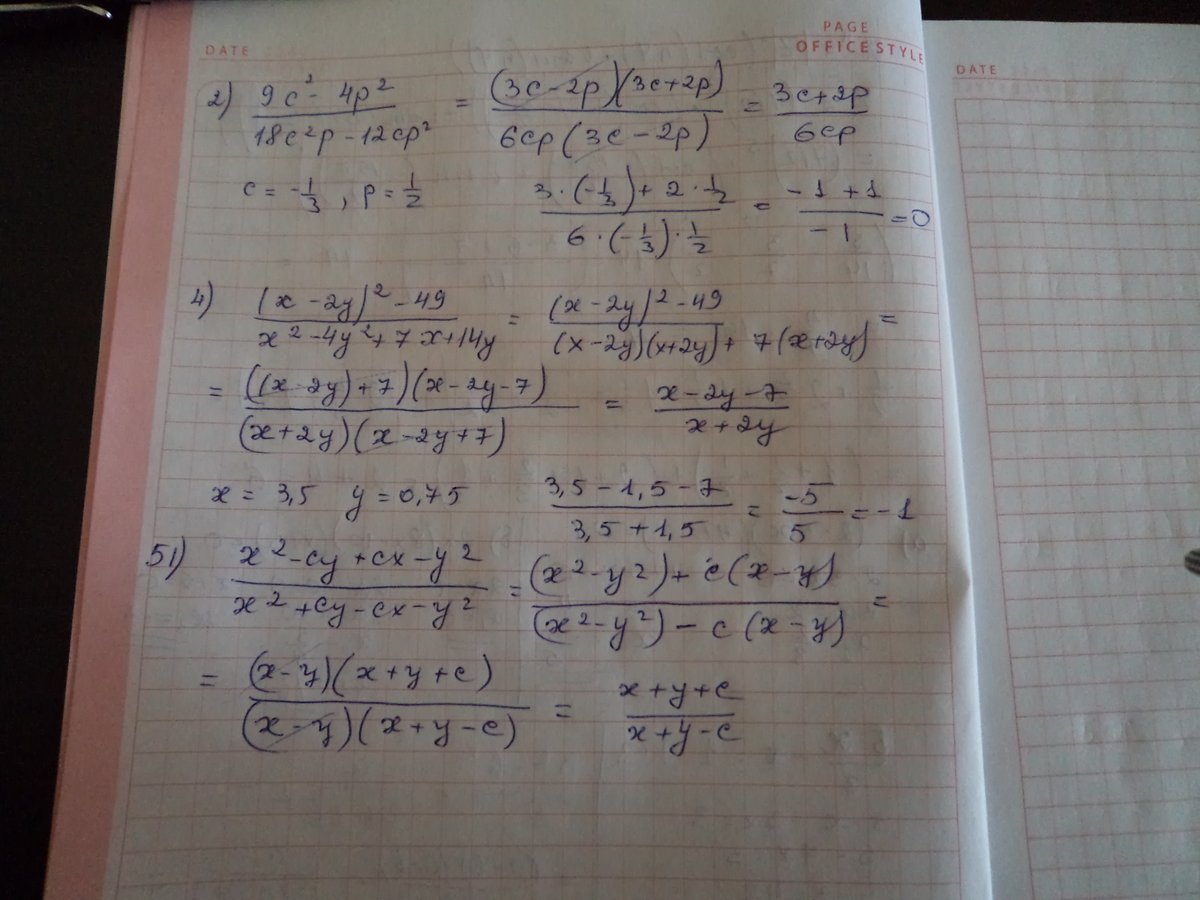 DATE
PAGE
OFFICE STYLE
DATE
2) (9c² - 4p²)/(18c²p - 12cp²) = ((3c - 2p)(3c + 2p))/(6cp(3c - 2p)) = (3c + 2p)/(6cp)
c = -1/3, p = 1/2 (3·(-1/3) + 2·1/2)/(6·(-1/3)·1/2) = (-1 + 1)/(-1) = 0
4) ((x - 2y)² - 49)/(x² - 4y² + 7x + 14y) = ((x - 2y)² - 49)/((x - 2y)(x + 2y) + 7(x + 2y)) =
= (((x - 2y) + 7)(x - 2y - 7))/((x + 2y)(x - 2y + 7)) = (x - 2y - 7)/(x + 2y)
x = 3,5 y = 0,75 (3,5 - 1,5 - 7)/(3,5 + 1,5) = -5/5 = -1
51) (x² - cy + cx - y²)/(x² + cy - cx - y²) = ((x² - y²) + c(x - y))/((x² - y²) - c(x - y)) =
= ((x - y)(x + y + c))/((x - y)(x + y - c)) = (x + y + c)/(x + y - c)